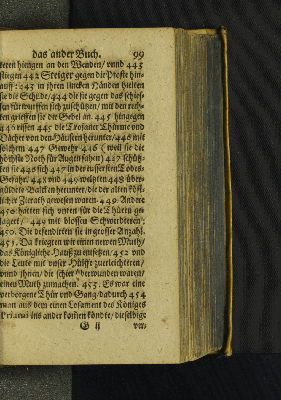 das ander Buch. 99
keren hiengen an den Wenden / vnnd 445
stiegen 442 Steiger gegen die Pfoste hin-
auff: 443 in ihren lincken Händen hielten
sie die Schilde / 444 die sie gegen das schies-
sen fürwurffen sich zuschützen / mit den rech-
ten grieffen sie die Gebel an. 445 hingegen
rissen 445 die Troianer Thürme vnd
Dächer von den Häusern herunter / 446 mit
solchem 447 Gewehr 446 (weil sie die
höchste Noth für Augen sahen) 447 schütz-
ten sie 448 sich 447 in der eussersten Todes-
Gefahr / 448 vnd 449 weltzten 448 über-
güldete Balcken herunter / die der alten köst-
licher Zierath gewesen waren. 449. Andere
450 hatten sich vnten für die Thüren ge-
lagert / 449 mit blossen Schwerdteren:
450. Die defendirten sie in grosser Anzahl.
451. Da kriegten wir einen newen Muth /
das Königliche Hauß zu entsetzen / 452 vnd
die Leute mit vnser Hülffe zuerleichteren /
vnnd ihnen / die schier überwunden waren /
einen Muth zumachen. 453. Es war eine
verborgene Thür vnd Gang / dadurch 454
man aus dem einen Losament des Königes
Priami ins ander kommen köndte / dieselbige
G ij ver-